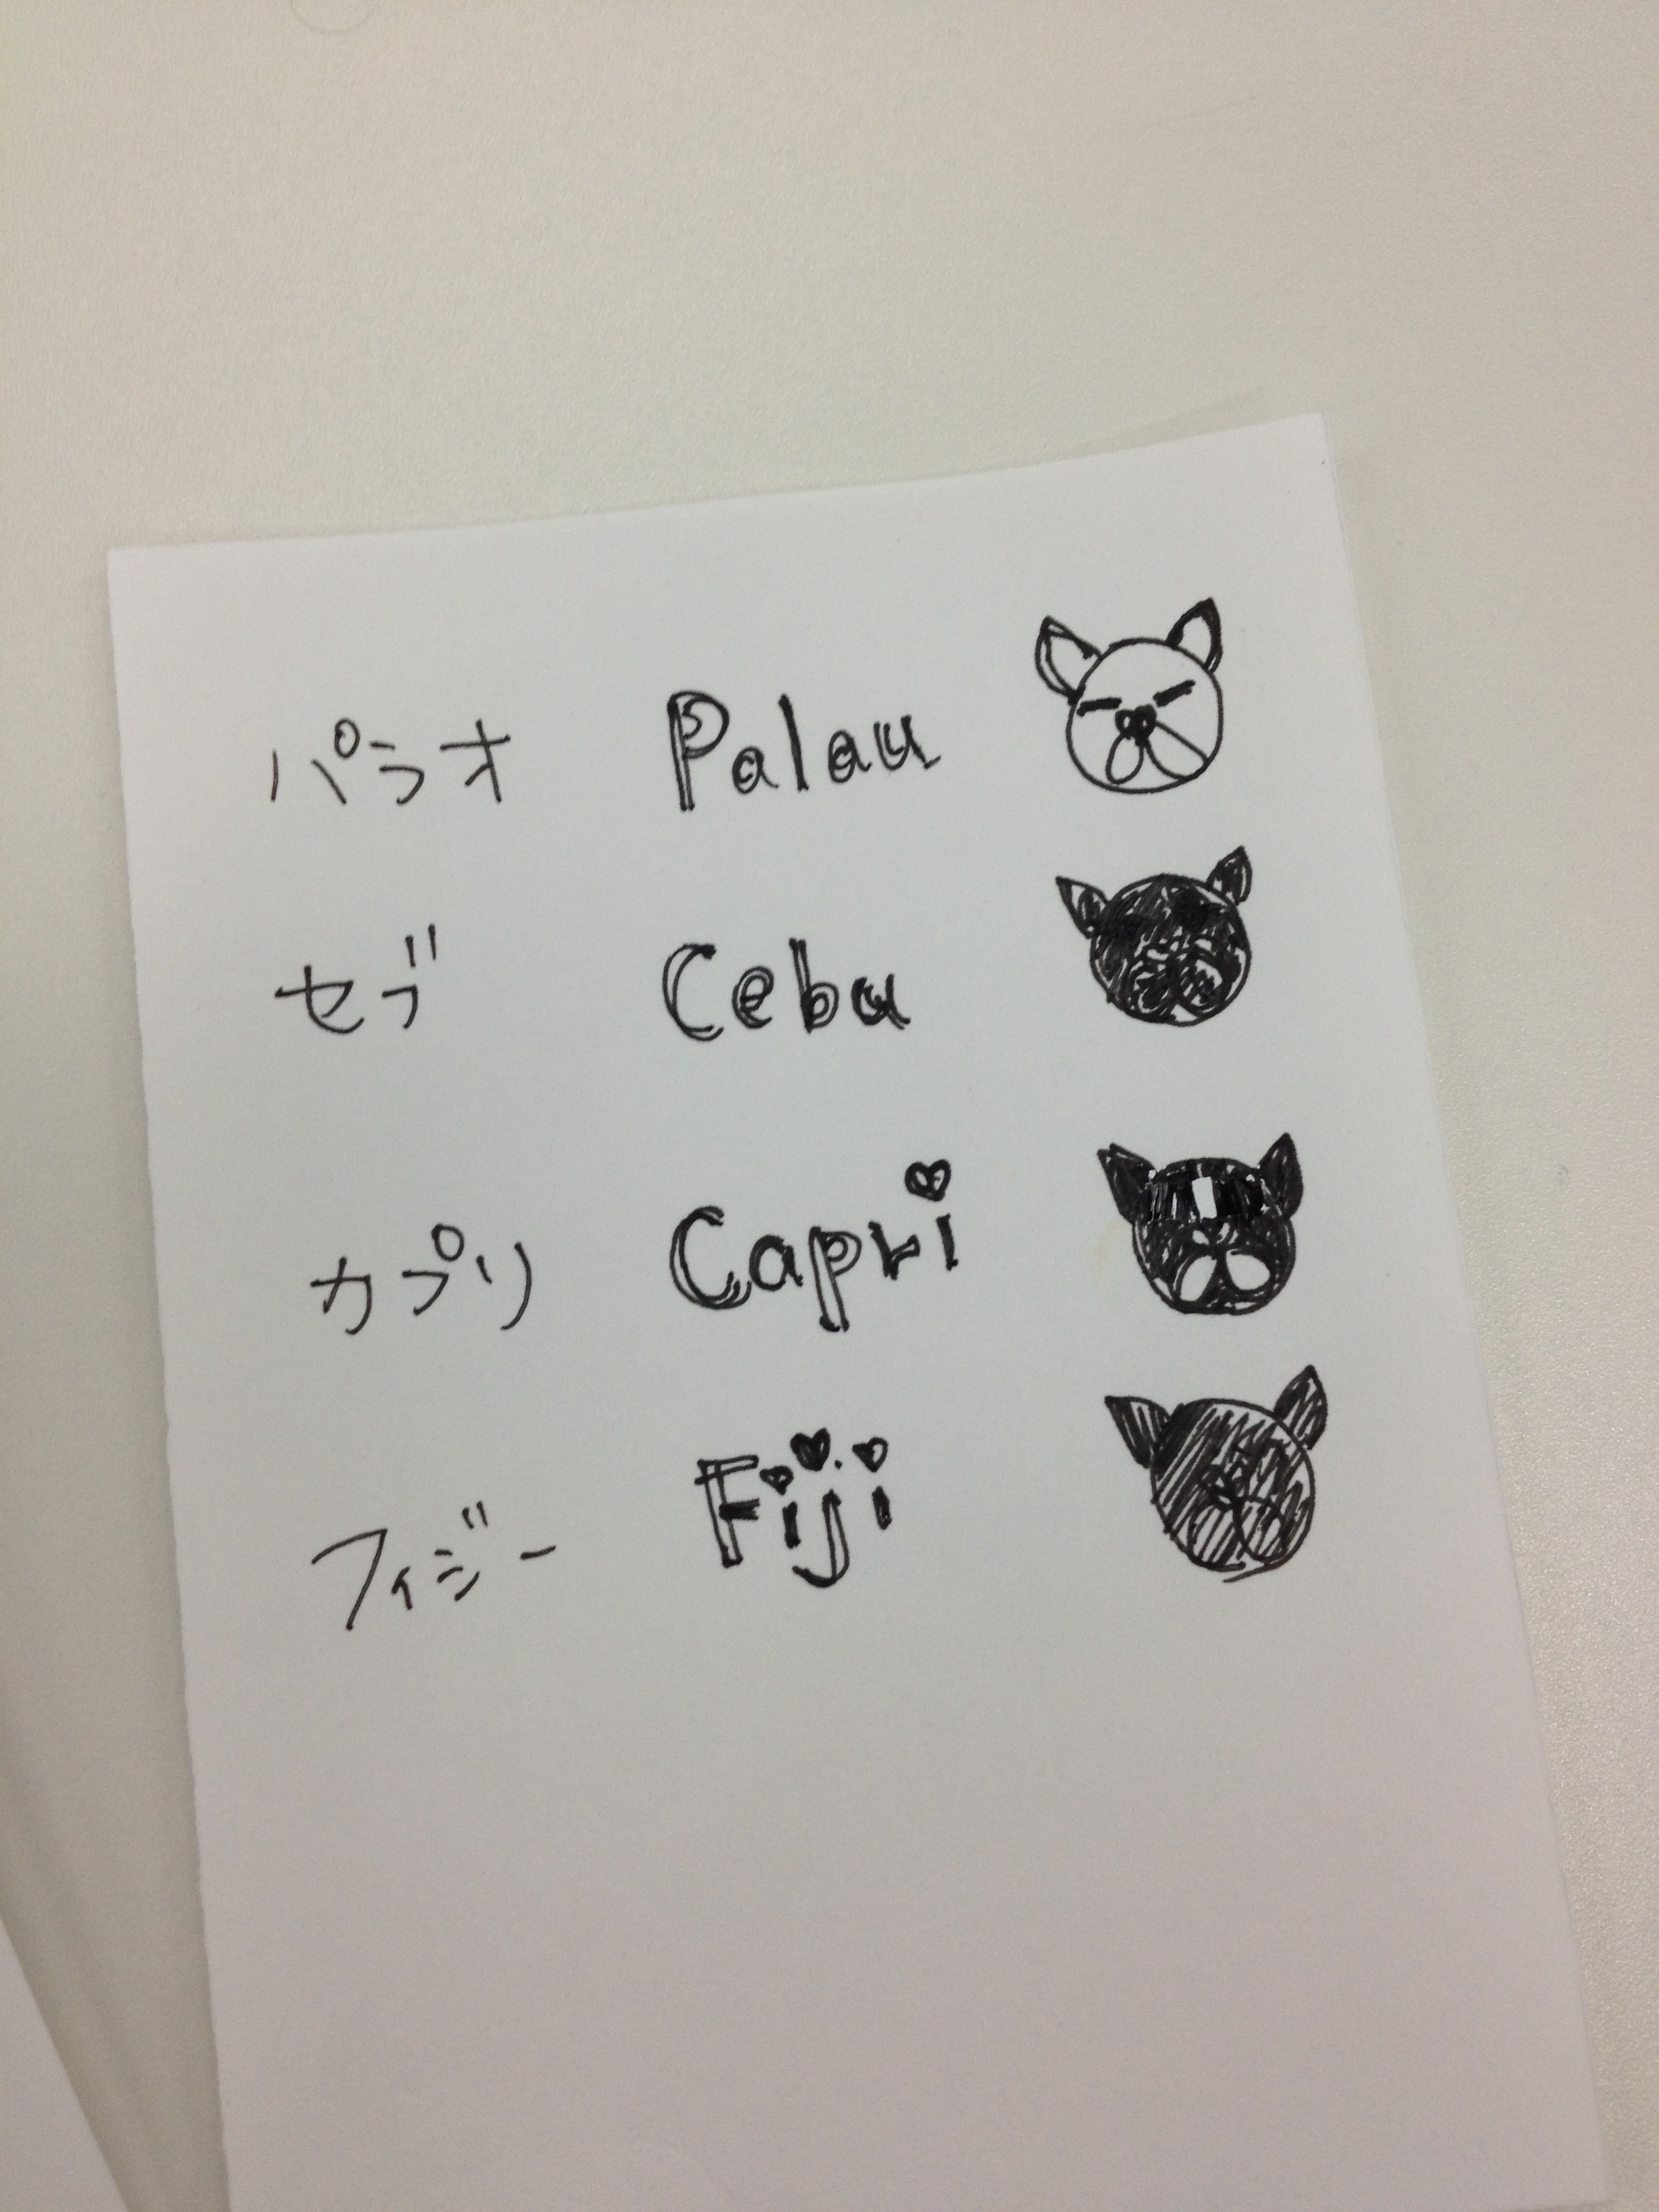 パラオ Palau
セブ Cebu
カプリ Capri
フィジー Fiji